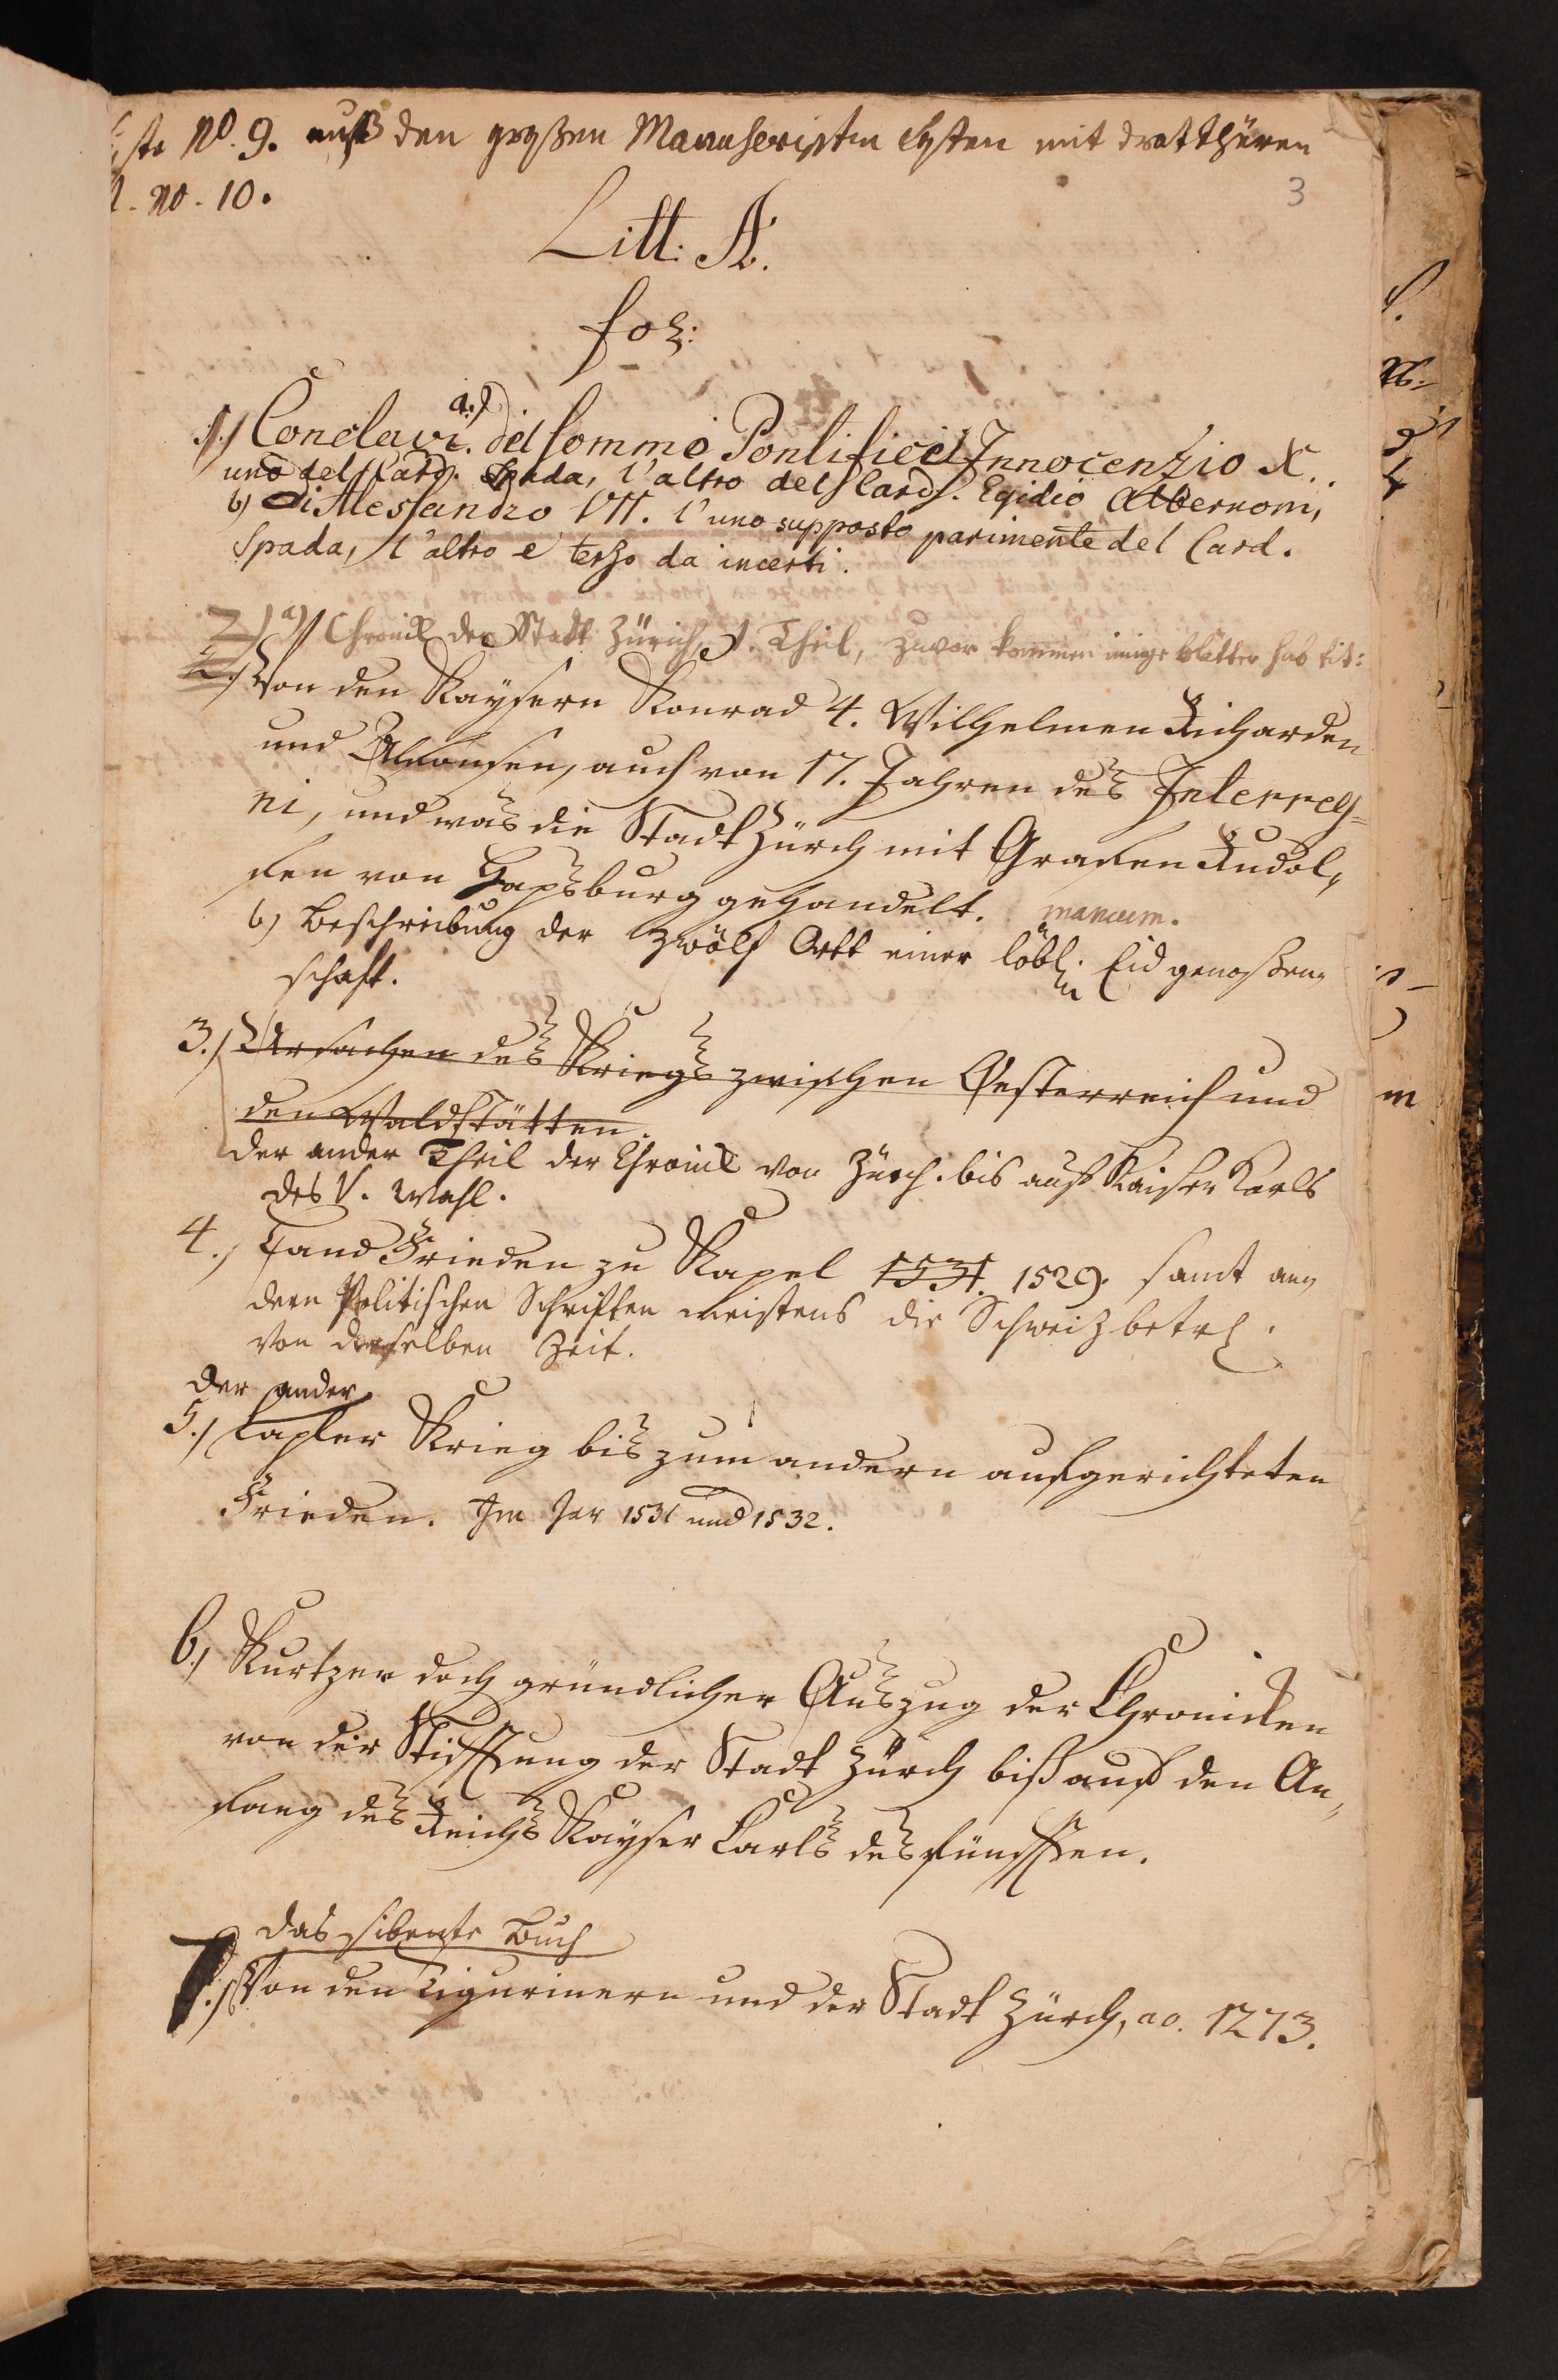 ste No. 9. auß den großen Manuscripten Cysten mit dratthüren
No. 10.
3
Litt: A.
fol:
1.) Conclavi. a.) del sommo Pontifice Innocenzio X.
uno del Card. Spada, l'altro del Card. Egidio Albernoni,
b) di Alessandro VII. l'uno supposto parimente del Card.
Spada, l'altro e terzo da incerti.
2) a) Chronik der Statt Zürich, 1. Theil, zuvor kommen einige blätter sub tit:
2.) Von den Kaysern Konrad 4. Wilhelmen Richarden
und Alfonsen, auch von 17. Jahren des Interreg=
ni, und was die Stadt Zürch mit Grafen Rudol,,
fen von Hapsburg gehandelt. mancum.
b) Beschreibung der zwölf Ortt einer löbl. Eidgenoßen,,
schaft.
3.) Ursachen des Kriegs zwischen Oesterreich und
den Waldstätten.
der ander Theil der Chronik von Zürch. bis auf Kaiser Karls
des V. Wahl.
4.) Land Frieden zu Kapel 1531. 1529. samt an,,
dern Politischen Schriften meistens die Schweiz betr.
von derselben Zeit.
der ander
5.) Capler Krieg bis zum andern aufgerichteten
Frieden. Im Jar 1531 und 1532.
6.) Kurtzer doch gründlicher Auszug der Chronicken
von der Stifftung der Stadt Zürch biß auf den An,,
fang des Reichs Kayser Carls des fünfften.
das sibente Buch
7.) Von den Tigurinern und der Stadt Zürch, ao. 1273.